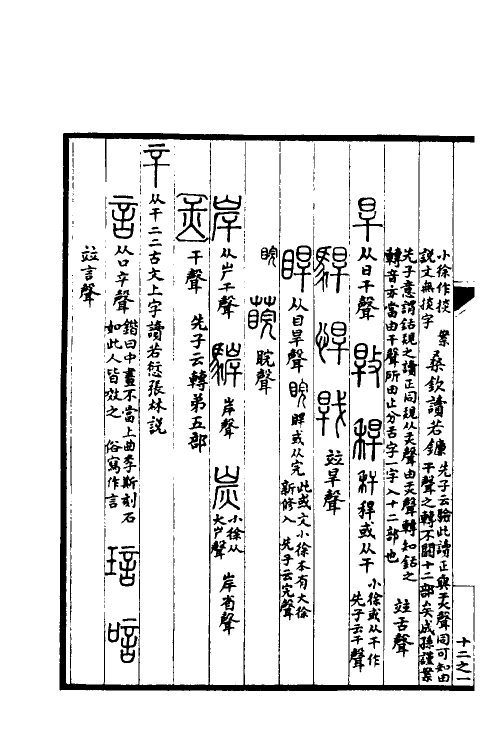 小徐作掞 說文無掞字 桑欽讀若鐮 先子云驗此讀正與𤆍聲同可知由干聲之轉不關十二部矣成孫謹案
先子意謂銛䂓之讀正同䂓从𤆍聲由𤆍聲轉知銛之轉音亦當由干聲所由止分舌字一字入十二部也 竝舌聲
旱 从日干聲 𢾍 稈 秆 稈或从干 小徐或从干作先子云干聲
駻 悍 戟 竝旱聲
睅 从目旱聲 睆 睅或从完 此或文小徐本有大徐新修入 先子云完聲
睆 莞 睆聲
岸 从屵干聲 䮗 岸聲 炭 小徐从火屵聲 岸省聲
𦉪 干聲 先子云轉第五部
䇂 从干二二古文上字讀若愆張林說
言 从口䇂聲 鍇曰中畫不當上曲李斯刻石如此人皆效之 俗寫作言 琂 唁
竝言聲
十二之一